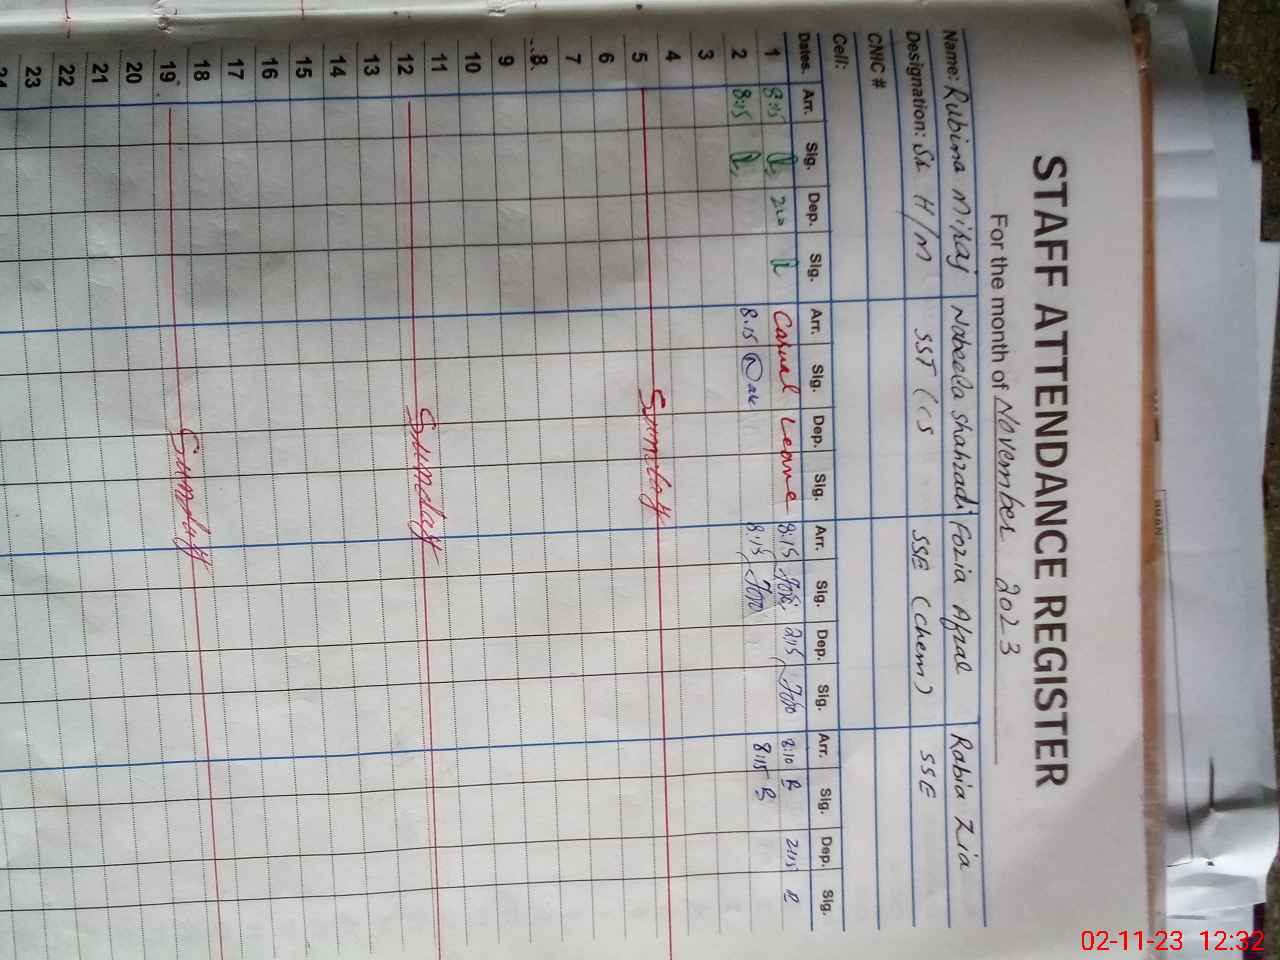 STAFF ATTENDANCE REGISTER
For the month of November 2023
Name: Rubina Nabeela Shahzadi Fozia Afzal Rabia Zia
Designation: Sr H/M SST (CS SSE (chem) SSE
CNIC #
Cell:
Dates. Arr. Sig. Dep. Sig. Arr. Sig. Dep. Sig. Arr. Sig. Dep. Sig. Arr. Sig. Dep. Sig.
1 8:15 Casual Leave 8:15 2:15 8:10 B 2:15 B
2 8:15 8.15 8:15 8:15 B
3
4
5 Sunday
6
7
8
9
10
11
12 Sunday
13
14
15
16
17
18
19 Sunday
20
21
22
23
24
02-11-23 12:32